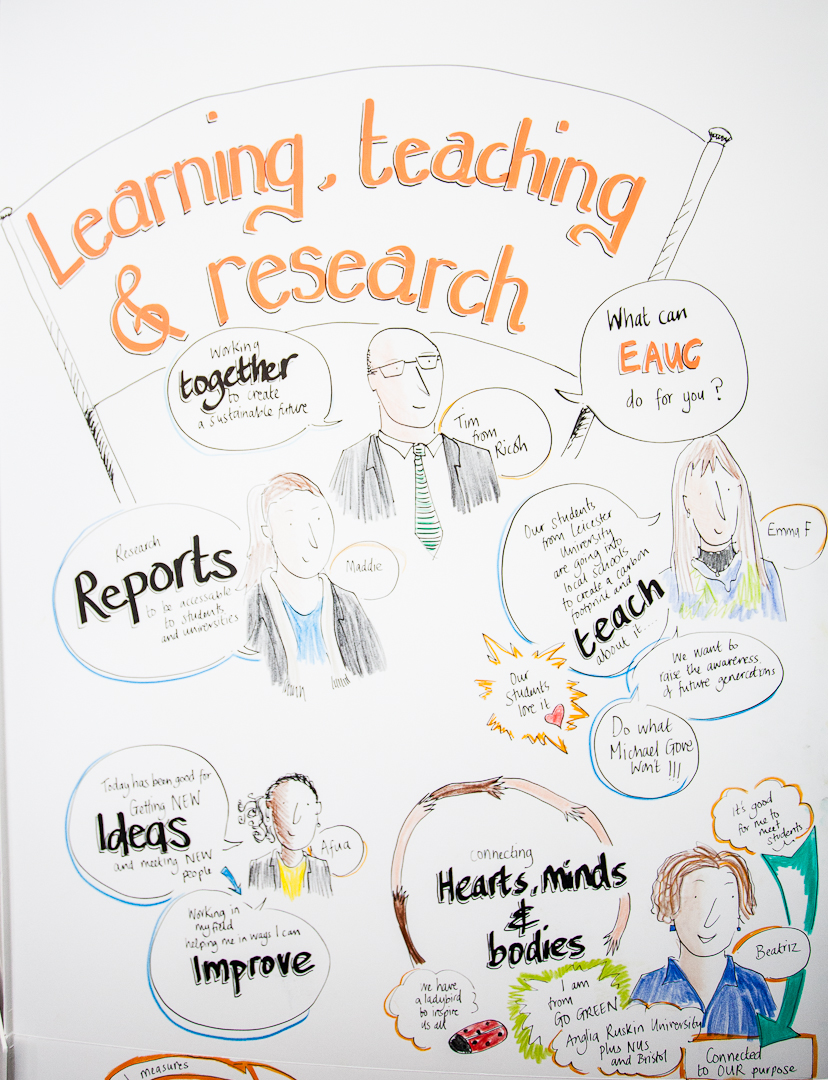 Learning, teaching
& research
Working
together
to create
a sustainable future
Tim
from
Ricoh
What can
EAUC
do for you?
Research
Reports
to be accessable
to students
and universities
Maddie
Our students
from Leicester
University
are going into
local schools
to create a carbon
footprint and
teach
about it....
Emma F
Our
students
love it
We want to
raise the awareness
of future generations
Do what
Michael Gove
Won't !!!
Today has been good for
Getting NEW
Ideas
and meeting NEW
people
Afua
Working in
my field
helping me in ways I can
Improve
connecting
Hearts, minds
&
bodies
we have
a ladybird
to inspire
us all
It's good
for me to
meet
students
Beatriz
I am
from
GO GREEN
Anglia Ruskin University
plus NUS
and Bristol
Connected
to OUR purpose
measures